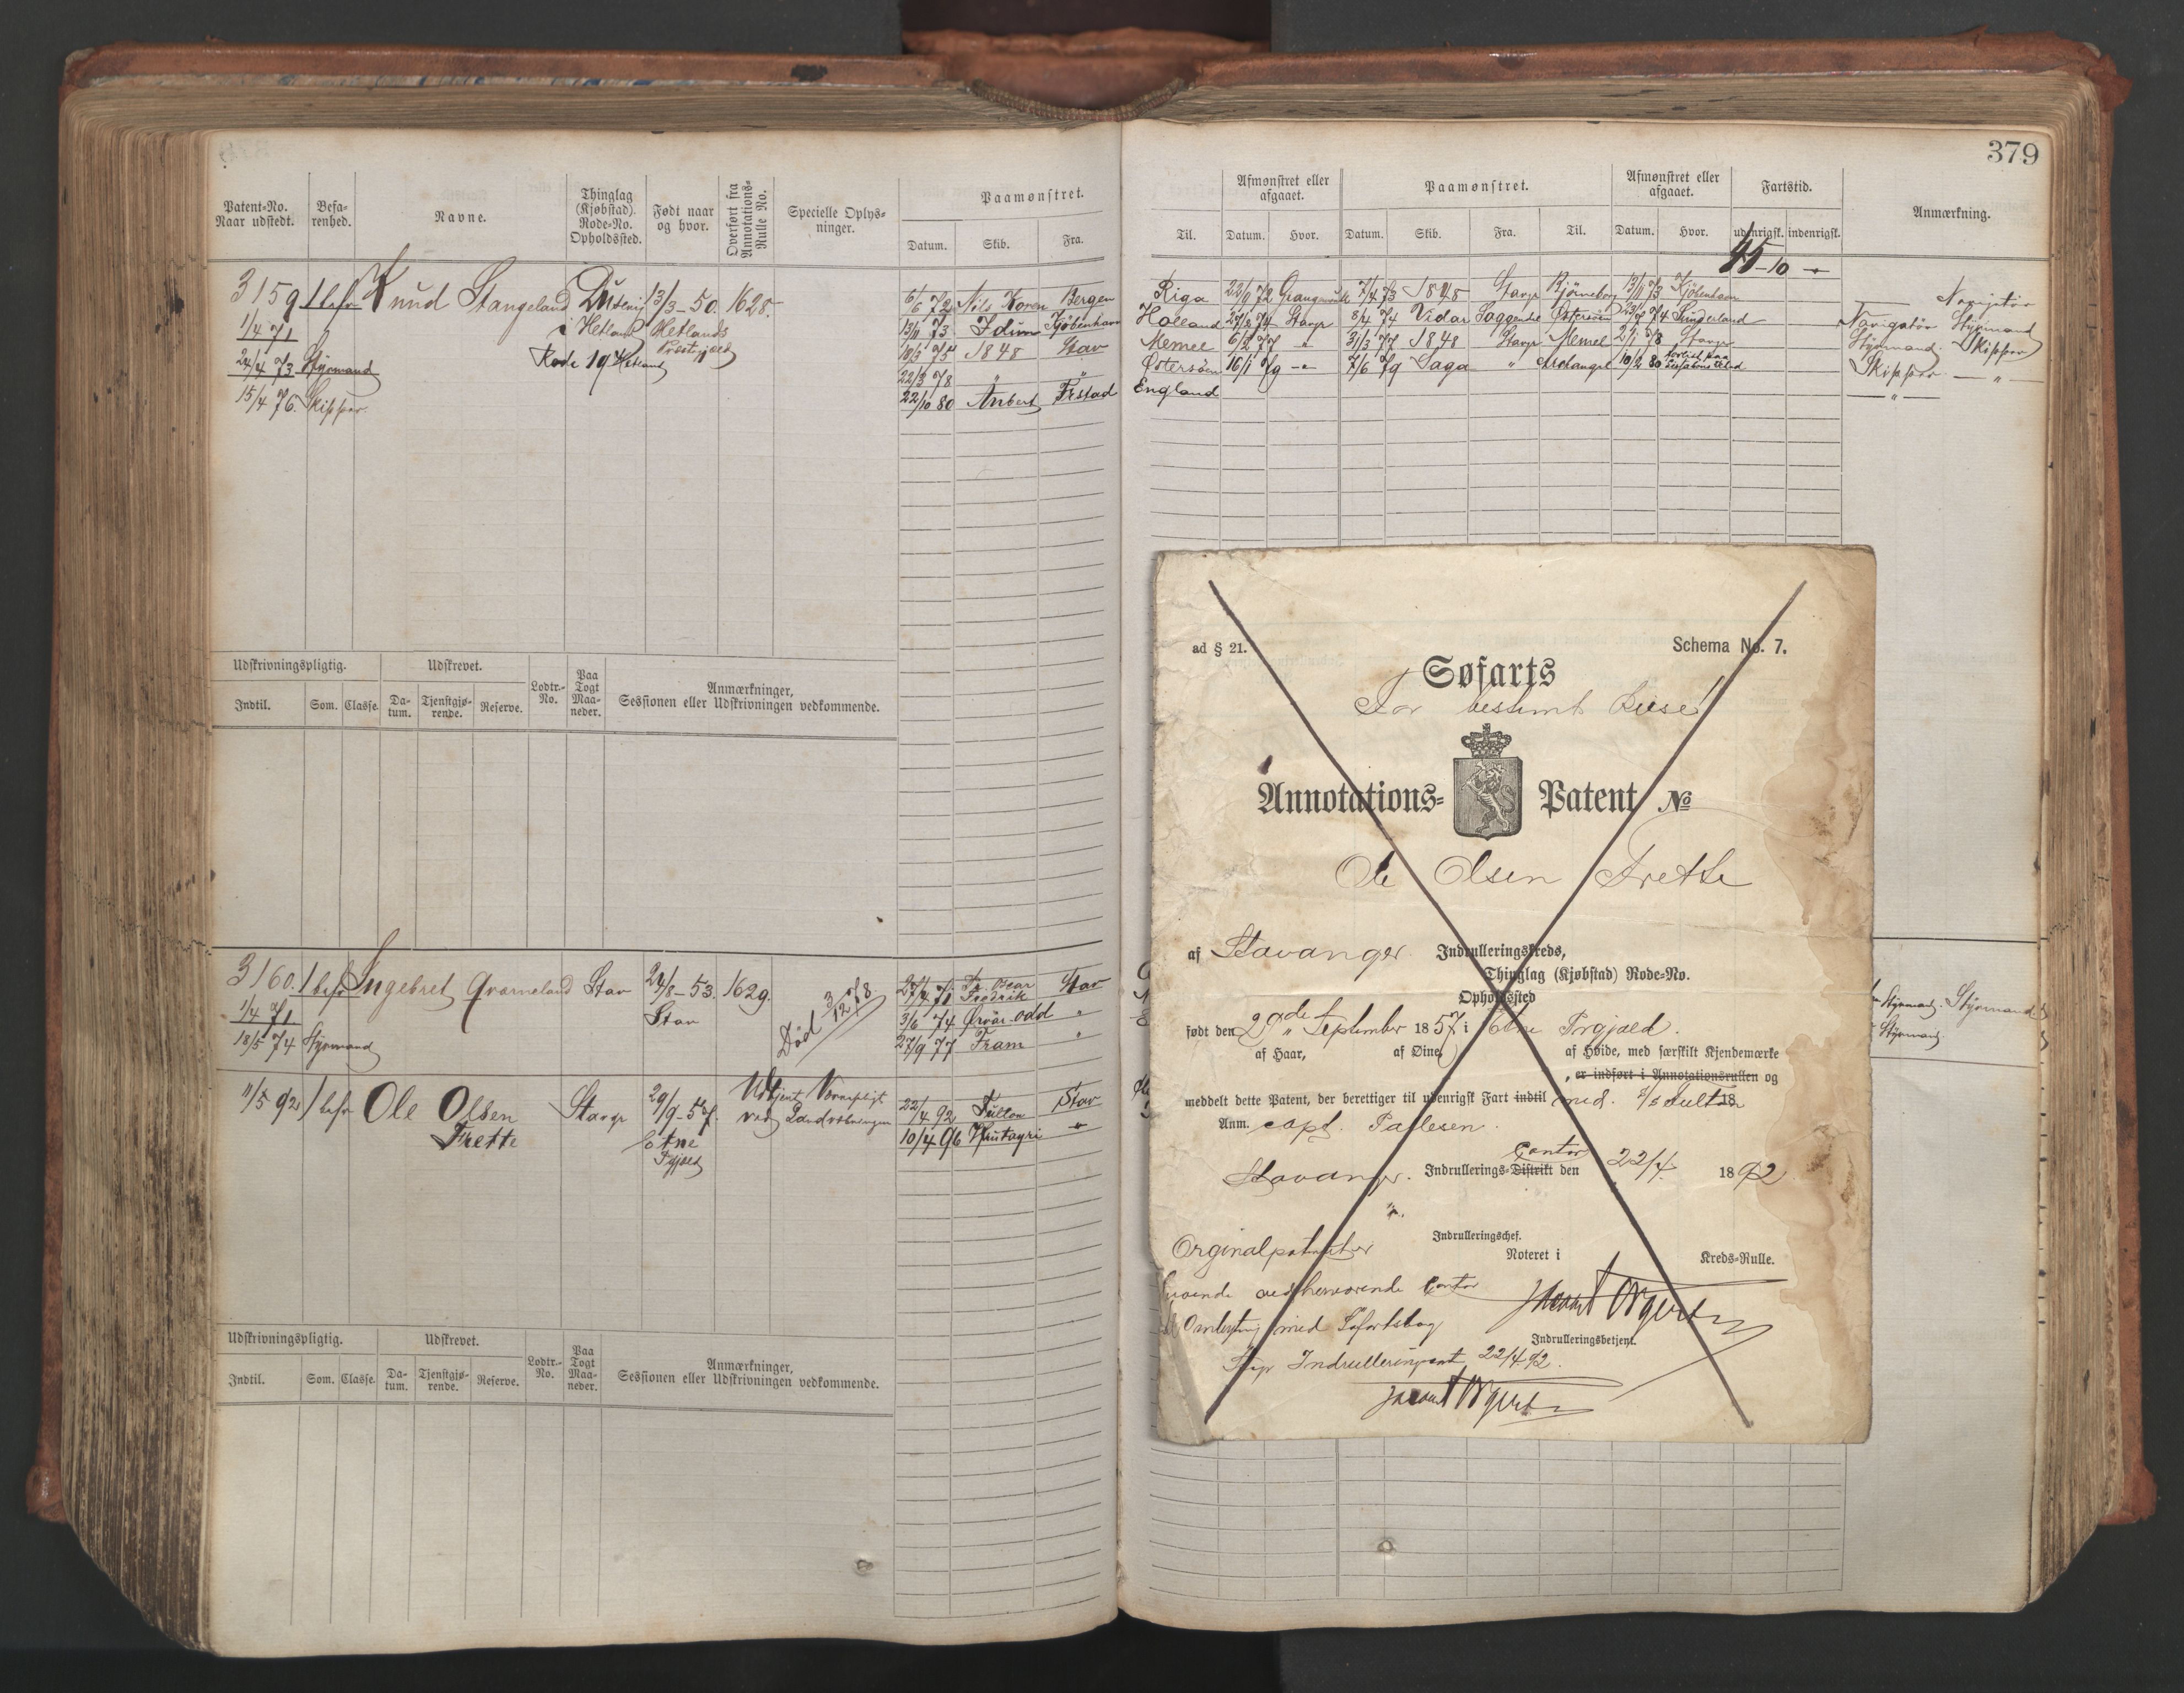 379
Patent-No. Naar udstedt.
Befarenhed.
Navne.
Thinglag (Kjøbstad). Rode-No. Opholdssted.
Født naar og hvor.
Overført fra Annotations-Rulle No.
Specielle Oplysninger.
Paamønstret.
Datum. Skib. Fra.
Til.
Afmønstret eller afgaaet.
Datum. Hvor.
Paamønstret.
Datum. Skib. Fra. Til.
Afmønstret eller afgaaet.
Datum. Hvor.
Fartstid.
udenrigsk. indenrigsk.
Anmærkning.
45-10
3159. 1 befr Knud Stangeland
i Hetland
Rode 19 Hetland
13/3-50. Hetlands Præstgjæld
1628.
1/4 71
24/4 73 Styrmand
15/4 76. Skipper
6/6 72 Nils Koren Bergen
13/11 73. Idun Kjøbenhavn
18/3 75 1848 Stav
22/3 78 " "
22/10 80 Anbert Frstad
Riga 22/9 72 7/4 73 1848 Stavgr Bjørneborg 13/11 73 Kjøbenhavn
Holland Stavgr 8/4 74 Vidar Soggendal Østersøen Sunderland
Memel 6/3 77 " 31/3 77 1848 Stavgr Memel 2/1 78 Stavgr
Østersøen 16/1 79 7/6 79 Saga " Archangel 10/2 80
England
Navigatør
Navigatør Styrmand
Styrmand. Skipper
Skipper. — " —
— " —
Udskrivningspligtig.
Indtil. Som. Classe.
Udskrevet.
Datum. Tjenstgjørende. Reserve.
Lodtr.-No.
Paa Togt Maaneder.
Anmærkninger, Sessionen eller Udskrivningen vedkommende.
3160. 1 befr Ingebret Qvameland Stav
24/8-53. Stav
1629.
Død 3/12 78
1/4 71
18/5 74 Styrmand
27/4 71 Fredrik Stav
3/6 74 Ørvar Odd "
27/9 77 Fram "
Styrmand. Styrmand
Styrmand.
11/5 92 1 befr Ole Olsen Frette Stavgr
29/9-57. Etne Pgjæld
Udtjent Værnepligt
ved Landvæbningen
22/4 92 Stav
10/4 96 "
Udskrivningspligtig.
Indtil. Som. Classe.
Udskrevet.
Datum. Tjenstgjørende. Reserve.
Lodtr.-No.
Paa Togt Maaneder.
Anmærkninger, Sessionen eller Udskrivningen vedkommende.
ad § 21.
Schema No. 7.
Søfarts
For bestemt Reise!
Annotations- Patent No
Ole Olsen Frette
af Stavanger Indrulleringskreds,
Thinglag (Kjøbstad) Rode-No.
Opholdssted
født den 29de September 1857 i Etne Prgjæld.
af Haar, af Øine, af Høide, med særskilt Kjendemærke
, er indført i Annotationsrullen og
meddelt dette Patent, der berettiger til udenrigsk Fart indtil med. 18
Anm. Capt. Paulesen.
Stavanger. Indrullerings-Distrikt Contor den 22/4 1892
Indrulleringschef.
Noteret i Kreds-Rulle.
Orginalpatentet
beroende ved herværende Contor
til Ombytning med Søfartsbog
Indrulleringsbetjent.
Stvgr Indrulleringscont 22/4 92.